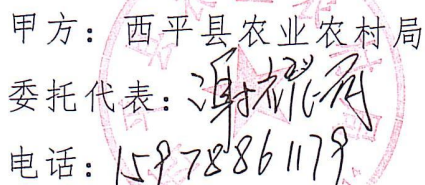 甲方：西平县农业农村局
委托代表：
电话：15978861179